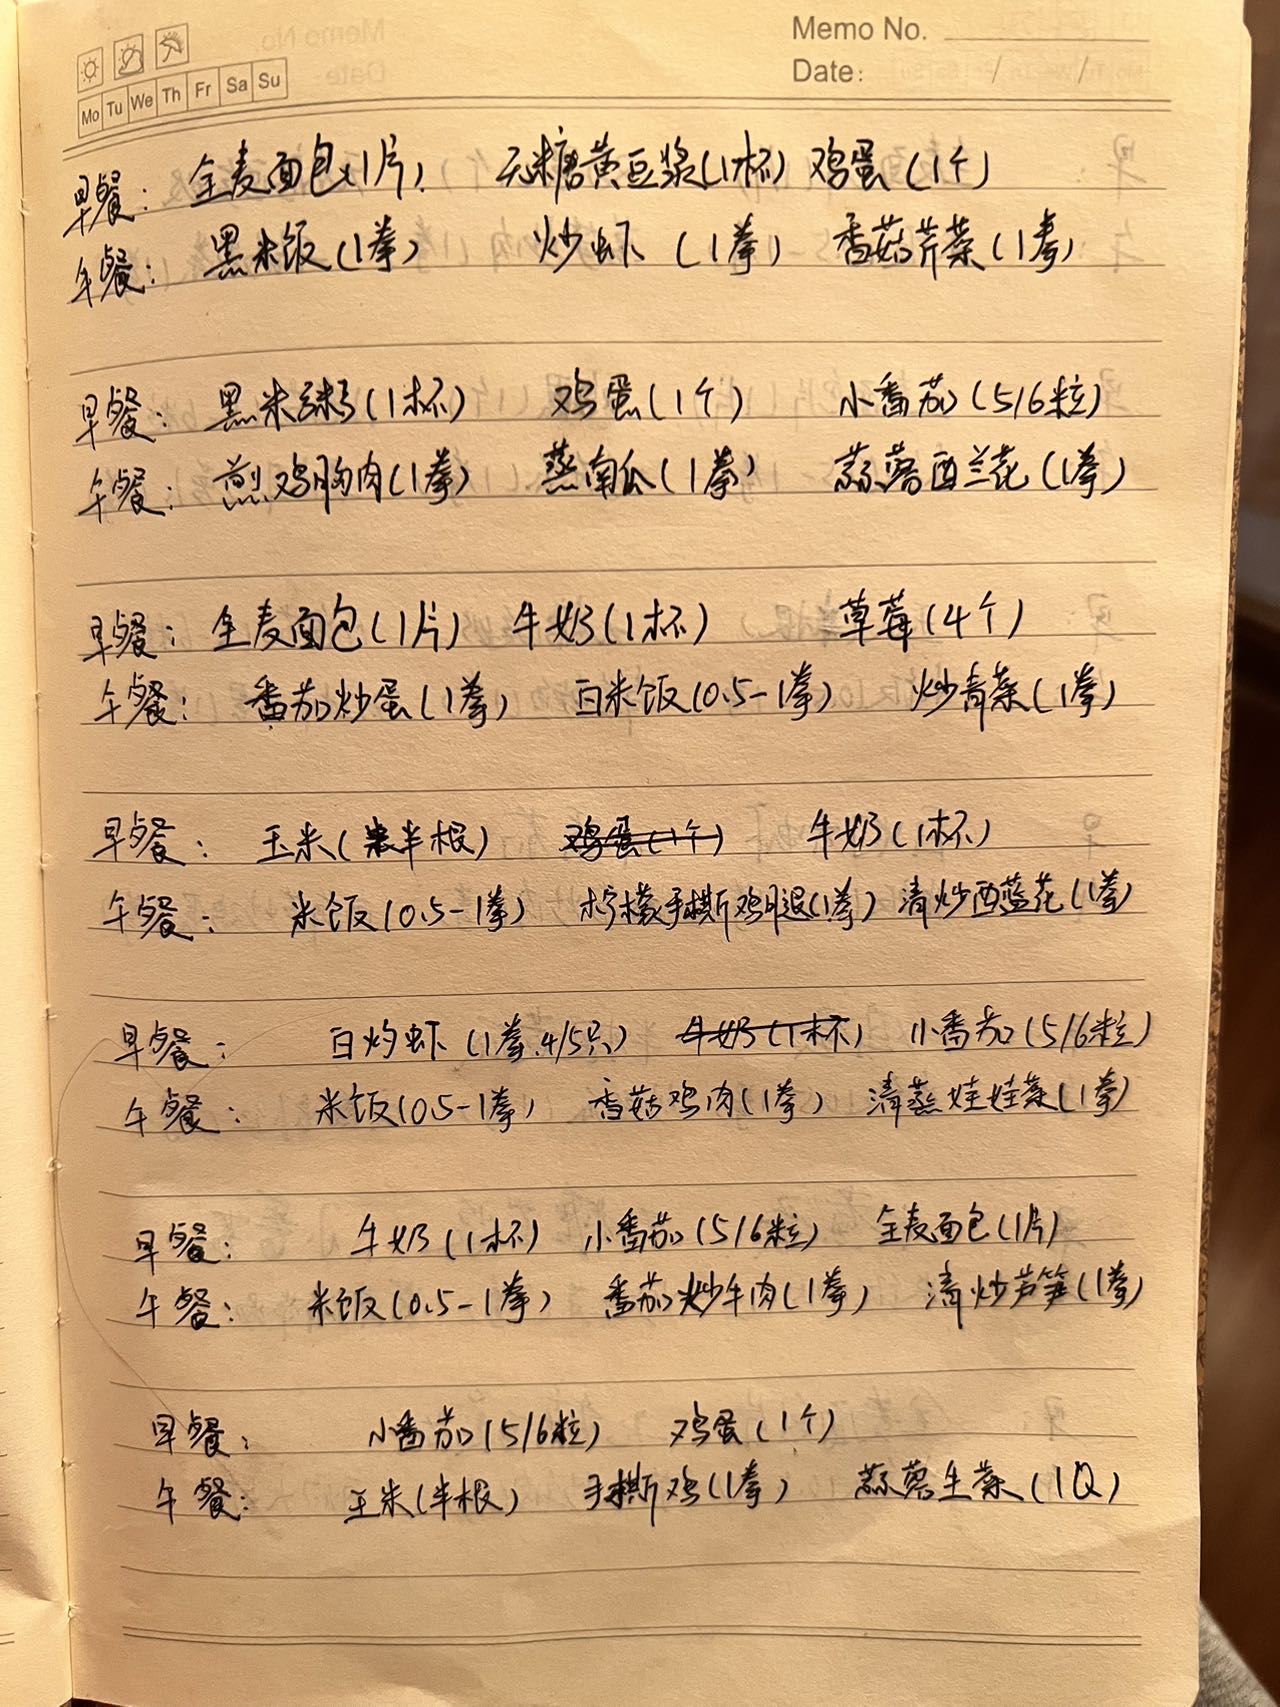 Memo No.
Mo Tu We Th Fr Sa Su Date: / /
早餐: 全麦面包(1片) 无糖黄豆浆(1杯) 鸡蛋(1个)
午餐: 黑米饭(1拳) 炒虾(1拳) 香菇芹菜(1拳)
早餐: 黑米粥(1杯) 鸡蛋(1个) 小番茄(5/6粒)
午餐: 煎鸡胸肉(1拳) 蒸南瓜(1拳) 蒜蓉西兰花(1拳)
早餐: 全麦面包(1片) 牛奶(1杯) 草莓(4个)
午餐: 番茄炒蛋(1拳) 白米饭(0.5-1拳) 炒青菜(1拳)
早餐: 玉米(半根) 鸡蛋(1个) 牛奶(1杯)
午餐: 米饭(0.5-1拳) 柠檬手撕鸡腿(1拳) 清炒西蓝花(1拳)
早餐: 白灼虾(1拳.4/5只) 牛奶(1杯) 小番茄(5/6粒)
午餐: 米饭(0.5-1拳) 香菇鸡肉(1拳) 清蒸娃娃菜(1拳)
早餐: 牛奶(1杯) 小番茄(5/6粒) 全麦面包(1片)
午餐: 米饭(0.5-1拳) 番茄炒牛肉(1拳) 清炒芦笋(1拳)
早餐: 小番茄(5/6粒) 鸡蛋(1个)
午餐: 玉米(半根) 手撕鸡(1拳) 蒜蓉生菜(1Q)